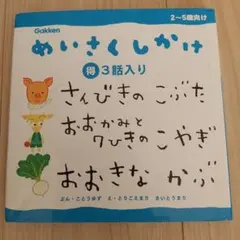 Gakken
2〜5歳向け
めいさくしかけ
得 3話入り
さんびきの こぶた
おおかみと
7ひきの こやぎ
おおきな かぶ
ぶん・ことうゆず え・とりごえまり さいとうまり